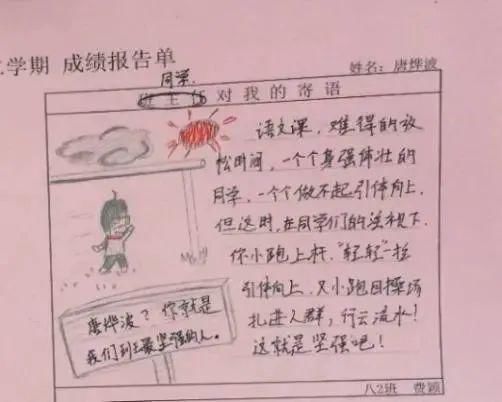 学期 成绩报告单
同学
姓名：唐烨波
班主任对我的寄语
语文课，难得的放
松时间，一个个身强体壮的
同学，一个个做不起引体向上
但这时，在同学们的注视下
你小跑上杆，"轻轻"一拉
引体向上，又小跑回操场
扎进人群，行云流水！
这就是坚强吧！
唐烨波？你就是
我们班最坚强的人。
八2班 费颖